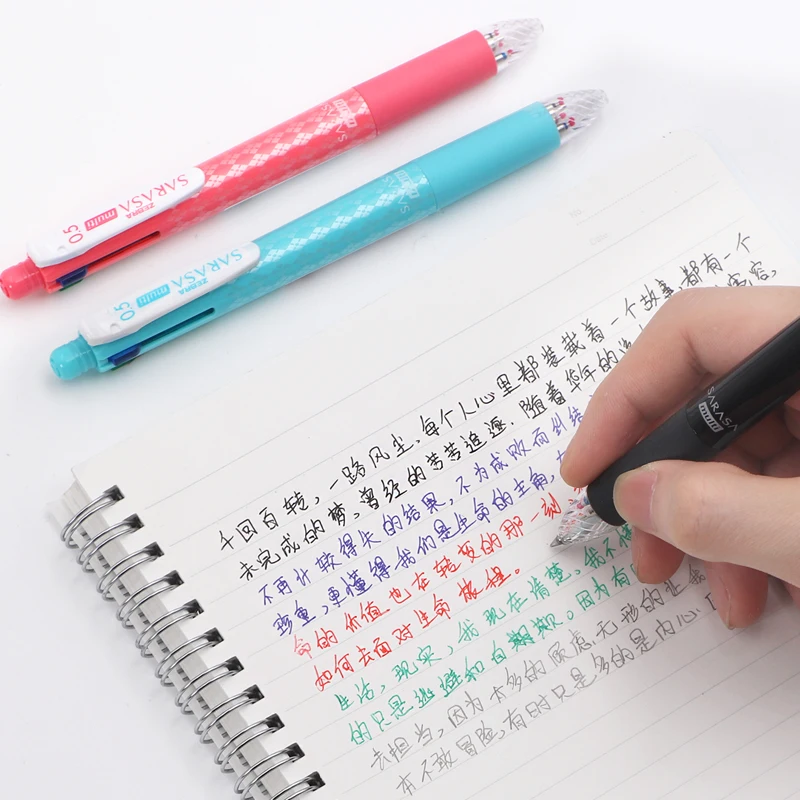 SARASA
multi
ZEBRA
SARASA
multi
0.5
SARASA
multi
ZEBRA
SARASA
multi
0.5
SARASA
multi
千回百转,一路风尘,每个人心里都装载着一个故事,都有一个
未完成的梦,曾经的苦苦追逐,随着华年的
不再计较得失的结果,不为成败而纠结
珍重,更懂得我们是生命的主角,
命的价值也在转变的那一刻
如何去面对生命旅程。
生活,现实,我现在清楚,我不
的只是逃避和自期欺。因为有
去担当,因为太多的顾虑,无形的让我
有不敢冒险,有时只是多的是内心